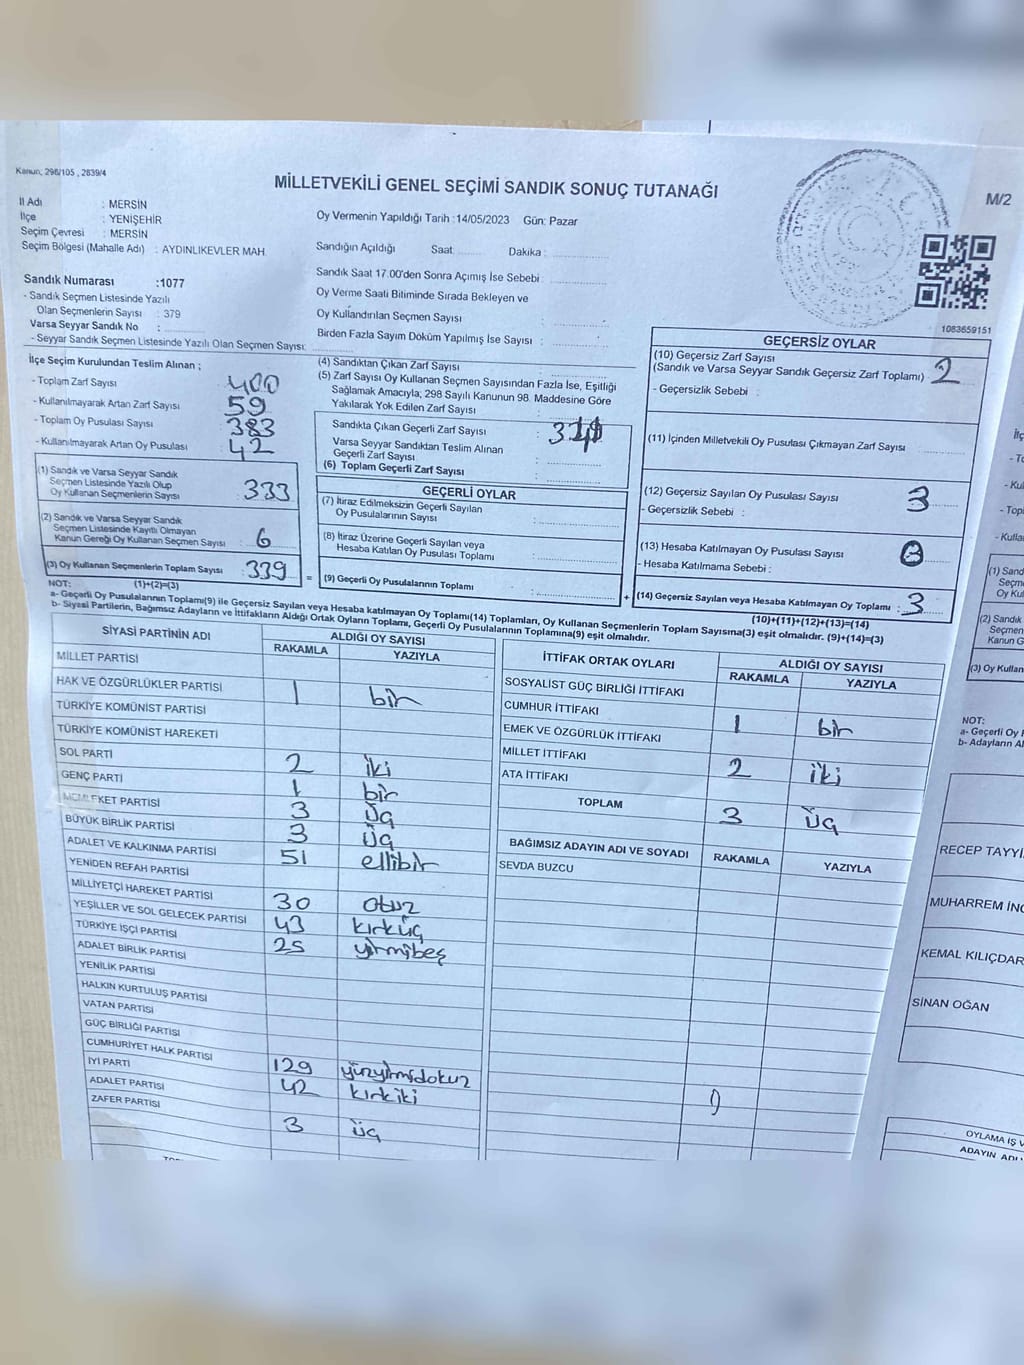 Kanun, 298/105 , 2839/4
MİLLETVEKİLİ GENEL SEÇİMİ SANDIK SONUÇ TUTANAĞI
M/2
İl Adı : MERSİN
İlçe : YENİŞEHİR
Seçim Çevresi : MERSİN
Seçim Bölgesi (Mahalle Adı) : AYDINLIKEVLER MAH.
Oy Vermenin Yapıldığı Tarih :14/05/2023 Gün: Pazar
Sandığın Açıldığı Saat Dakika :
Sandık Saat 17.00'den Sonra Açımış İse Sebebi :
Oy Verme Saati Bitiminde Sırada Bekleyen ve
Oy Kullandırılan Seçmen Sayısı :
Birden Fazla Sayım Döküm Yapılmış İse Sayısı :
1083659151
Sandık Numarası :1077
- Sandık Seçmen Listesinde Yazılı
Olan Seçmenlerin Sayısı : 379
Varsa Seyyar Sandık No :
- Seyyar Sandık Seçmen Listesinde Yazılı Olan Seçmen Sayısı:
İlçe Seçim Kurulundan Teslim Alınan ;
- Toplam Zarf Sayısı : 400
- Kullanılmayarak Artan Zarf Sayısı : 59
- Toplam Oy Pusulası Sayısı : 383
- Kullanılmayarak Artan Oy Pusulası : 42
(1) Sandık ve Varsa Seyyar Sandık
Seçmen Listesinde Yazılı Olup
Oy Kullanan Seçmenlerin Sayısı : 333
(2) Sandık ve Varsa Seyyar Sandık
Seçmen Listesinde Kayıtlı Olmayan
Kanun Gereği Oy Kullanan Seçmen Sayısı : 6
(3) Oy Kullanan Seçmenlerin Toplam Sayısı : 339
(4) Sandıktan Çıkan Zarf Sayısı :
(5) Zarf Sayısı Oy Kullanan Seçmen Sayısından Fazla İse, Eşitliği
Sağlamak Amacıyla, 298 Sayılı Kanunun 98. Maddesine Göre
Yakılarak Yok Edilen Zarf Sayısı :
Sandıkta Çıkan Geçerli Zarf Sayısı :
Varsa Seyyar Sandıktan Teslim Alınan
Geçerli Zarf Sayısı :
(6) Toplam Geçerli Zarf Sayısı :
GEÇERLİ OYLAR
(7) İtiraz Edilmeksizin Geçerli Sayılan
Oy Pusulalarının Sayısı :
(8) İtiraz Üzerine Geçerli Sayılan veya
Hesaba Katılan Oy Pusulası Toplamı :
= (9) Geçerli Oy Pusulalarının Toplamı :
GEÇERSİZ OYLAR
(10) Geçersiz Zarf Sayısı
(Sandık ve Varsa Seyyar Sandık Geçersiz Zarf Toplamı) : 2
- Geçersizlik Sebebi :
(11) İçinden Milletvekili Oy Pusulası Çıkmayan Zarf Sayısı
(12) Geçersiz Sayılan Oy Pusulası Sayısı : 3
- Geçersizlik Sebebi :
(13) Hesaba Katılmayan Oy Pusulası Sayısı :
- Hesaba Katılmama Sebebi :
+ (14) Geçersiz Sayılan veya Hesaba Katılmayan Oy Toplamı : 3
NOT: (1)+(2)=(3)
(10)+(11)+(12)+(13)=(14)
a- Geçerli Oy Pusulalarının Toplamı(9) ile Geçersiz Sayılan veya Hesaba katılmayan Oy Toplamı(14) Toplamları, Oy Kullanan Seçmenlerin Toplam Sayısıma(3) eşit olmalıdır. (9)+(14)=(3)
b- Siyasi Partilerin, Bağımsız Adayların ve İttifakların Aldığı Ortak Oyların Toplamı, Geçerli Oy Pusulalarının Toplamına(9) eşit olmalıdır.
SİYASİ PARTİNİN ADI ALDIĞI OY SAYISI
RAKAMLA YAZIYLA
MİLLET PARTİSİ
HAK VE ÖZGÜRLÜKLER PARTİSİ 1 bir
TÜRKİYE KOMÜNİST PARTİSİ
TÜRKİYE KOMÜNİST HAREKETİ
SOL PARTİ 2 iki
GENÇ PARTİ 1 bir
MEMLEKET PARTİSİ 3 üç
BÜYÜK BİRLİK PARTİSİ 3 üç
ADALET VE KALKINMA PARTİSİ 51 ellibir
YENİDEN REFAH PARTİSİ
MİLLİYETÇİ HAREKET PARTİSİ 30 otuz
YEŞİLLER VE SOL GELECEK PARTİSİ 43 kırküç
TÜRKİYE İŞÇİ PARTİSİ 25 yirmibeş
ADALET BİRLİK PARTİSİ
YENİLİK PARTİSİ
HALKIN KURTULUŞ PARTİSİ
VATAN PARTİSİ
GÜÇ BİRLİĞİ PARTİSİ
CUMHURİYET HALK PARTİSİ 129 yüzyirmidokuz
İYİ PARTİ 42 kırkiki
ADALET PARTİSİ
ZAFER PARTİSİ 3 üç
İTTİFAK ORTAK OYLARI ALDIĞI OY SAYISI
RAKAMLA YAZIYLA
SOSYALİST GÜÇ BİRLİĞİ İTTİFAKI
CUMHUR İTTİFAKI 1 bir
EMEK VE ÖZGÜRLÜK İTTİFAKI
MİLLET İTTİFAKI 2 iki
ATA İTTİFAKI
TOPLAM 3 üç
BAĞIMSIZ ADAYIN ADI VE SOYADI RAKAMLA YAZIYLA
SEVDA BUZCU
(1) Sand
Seçm
Oy Kul
(2) Sandık
Seçmen
Kanun G
(3) Oy Kullan
NOT:
a- Geçerli Oy
b- Adayların
RECEP TAYYİ
MUHARREM İNC
KEMAL KILIÇDAR
SİNAN OĞAN
OYLAMA İŞ V
ADAYIN ADI